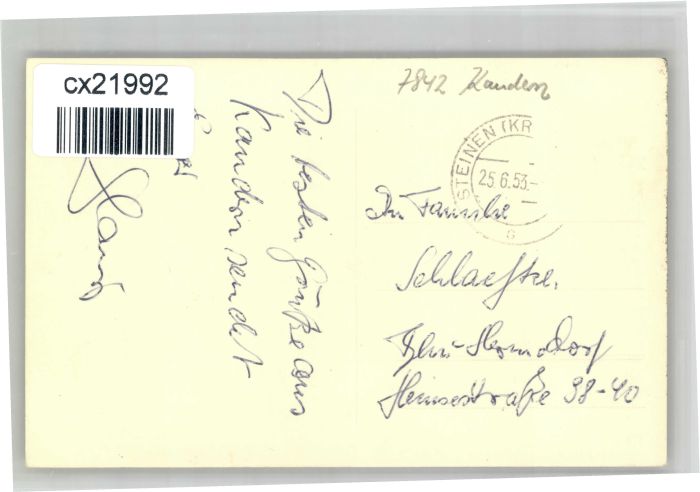 cx21992
7842 Kandern
STEINEN (KR
25.6.53.-
Die besten Grüße aus
Kandern sendet
Hans
An Familie
Schlaefke.
Bln-Hermsdorf
Heinsestraße 38-40